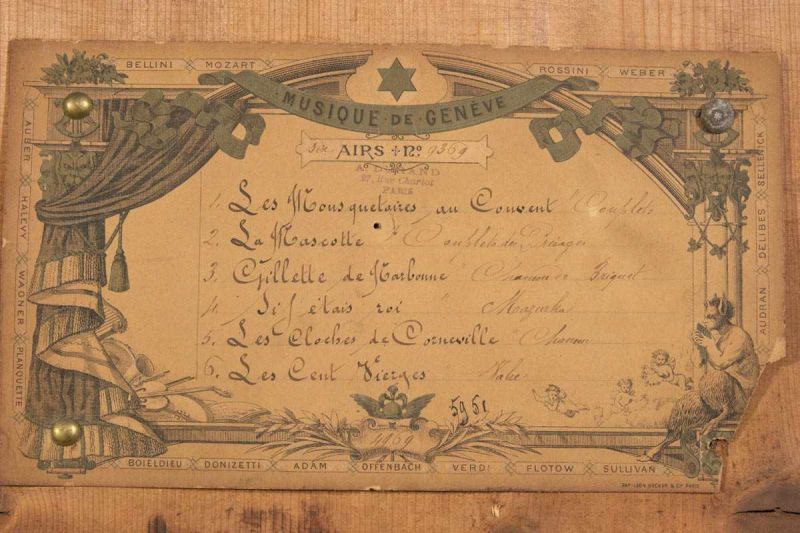 BELLINI MOZART
ROSSINI WEBER
AUBER HALEVY WAGNER PLANQUETTE
MUSIQUE DE GENÈVE
AIRS No. 9369
A. DURAND
27, Rue Charlot
PARIS
1. Les Mousquetaires au Couvent Couplets
2. La Mascotte Couplets des Présages
3. Gillette de Narbonne Chanson de Briquet
4. Si j'étais roi Mazurka
5. Les Cloches de Corneville Chanson
6. Les Cent Vierges Valse
5961
9369
SELLENICK DELIBES AUDRAN
BOIELDIEU DONIZETTI ADAM OFFENBACH VERDI FLOTOW SULLIVAN